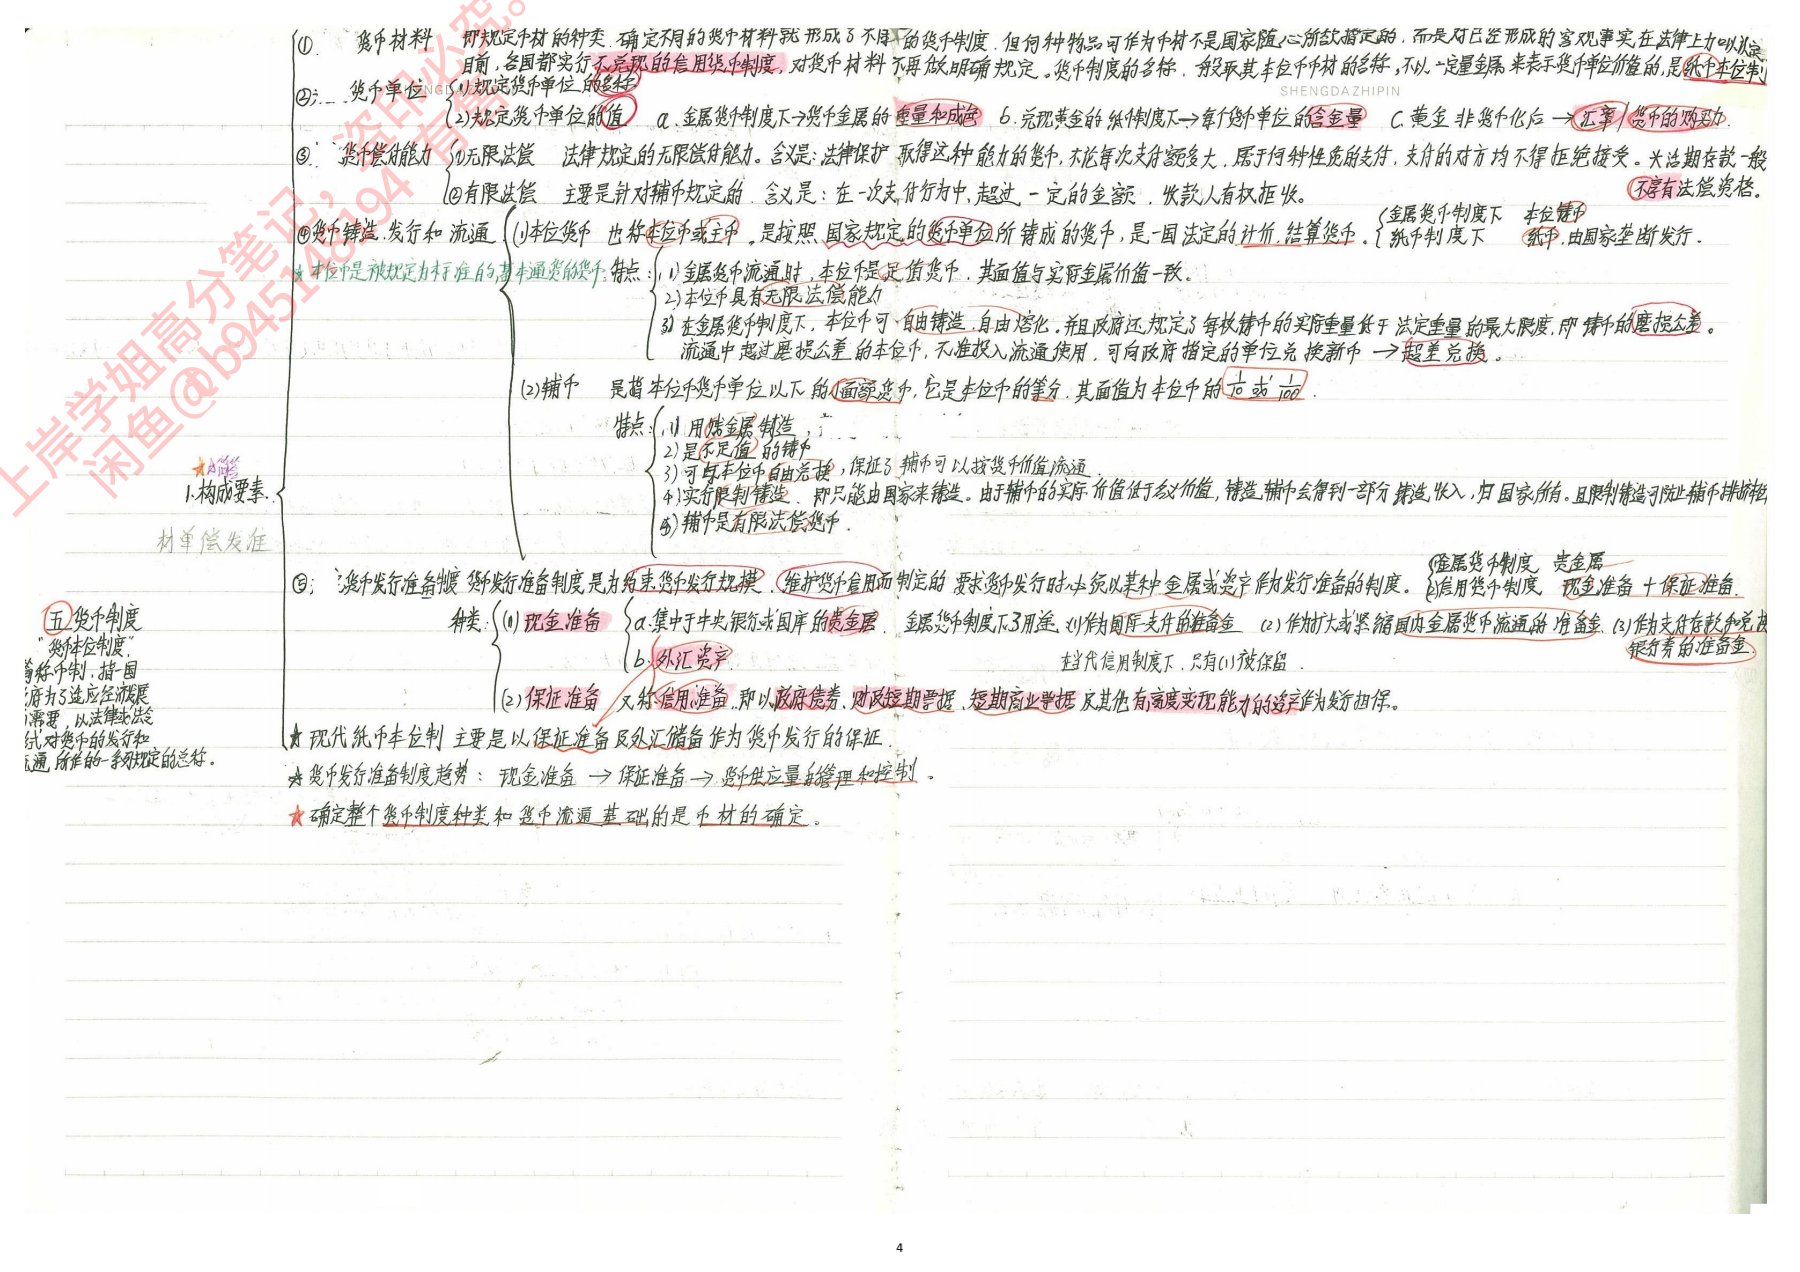 ① 货币材料 即规定币材的种类，确定不同的货币材料就形成了不同的货币制度，但何种物品可作为币材不是国家随心所欲指定的，而是对已经形成的客观事实在法律上加以认定
目前，各国都实行不兑现的信用货币制度，对货币材料不再做明确规定。货币制度的名称，一般取其本位币币材的名称，不以一定量金属来表示货币单位价值的，是纸币本位制
SHENGDAZHIPIN
② 货币单位 (1)规定货币单位的名称
(2)规定货币单位的值 a.金属货币制度下→货币金属的重量和成色 b.兑现黄金的纸币制度下→每个货币单位的含金量 C.黄金非货币化后→汇率/货币的购买力.
③ 货币偿付能力 ①无限法偿 法律规定的无限偿付能力。含义是：法律保护取得这种能力的货币，不论每次支付额多大，属于何种性质的支付，支付的对方均不得拒绝接受。
活期存款一般不享有法偿资格。
②有限法偿 主要是针对辅币规定的，含义是：在一次支付行为中，超过一定的金额，收款人有权拒收。
④货币铸造、发行和流通 (1)本位货币 也称本位币或主币。是按照国家规定的货币单位所铸成的货币，是一国法定的计价、结算货币。
金属货币制度下 本位铸币
纸币制度下 纸币，由国家垄断发行.
★本位币是被规定为标准的基本通货的货币.
特点：(1)金属货币流通时，本位币是足值货币，其面值与实际金属价值一致。
2)本位币具有无限法偿能力
3)在金属货币制度下，本位币可自由铸造、自由熔化。并且政府还规定了每枚铸币的实际重量低于法定重量的最大限度，即铸币的磨损公差。
流通中超过磨损公差的本位币，不准投入流通使用，可向政府指定的单位兑换新币→超差兑换。
(2)辅币 是指本位币货币单位以下的小面额货币，它是本位币的等分，其面值为本位币的1/10或1/100.
特点：(1)用贱金属制造，
2)是不足值的铸币
3)可与本位币自由兑换，保证了辅币可以按货币价值流通
4)实行限制铸造，即只能由国家来铸造。由于辅币的实际价值低于名义价值，铸造辅币会得到一部分铸造收入，归国家所有。且限制铸造可防止辅币排挤本位
5)辅币是有限法偿货币.
★简答
1.构成要素.
材单偿发准
⑤ 货币发行准备制度 货币发行准备制度是为约束货币发行规模、维护货币信用而制定的 要求货币发行时必须以某种金属或资产作为发行准备的制度。
金属货币制度 贵金属
信用货币制度 现金准备+保证准备.
种类：(1)现金准备 a.集中于中央银行或国库的贵金属.
金属货币制度下3用途 (1)作为国际支付的准备金 (2)作为扩大或紧缩国内金属货币流通的准备金 (3)作为支付存款和兑换
银行券的准备金.
b.外汇资产.
在当代信用制度下，只有(1)被保留.
(2)保证准备 又称信用准备，即以政府债券、财政短期票据、短期商业票据及其他有高度变现能力的资产作为发行担保。
★现代纸币本位制 主要是以保证准备及外汇储备作为货币发行的保证.
★货币发行准备制度趋势：现金准备→保证准备→货币供应量的管理和控制。
★确定整个货币制度种类和货币流通基础的是币材的确定。
五 货币制度
"货币本位制度"，
简称币制，指一国
政府为了适应经济发展
的需要，以法律或法令
形式对货币的发行和
流通所作的一系列规定的总称。
上岸学姐高分笔记，盗印必究。
闲鱼@b945148194
4